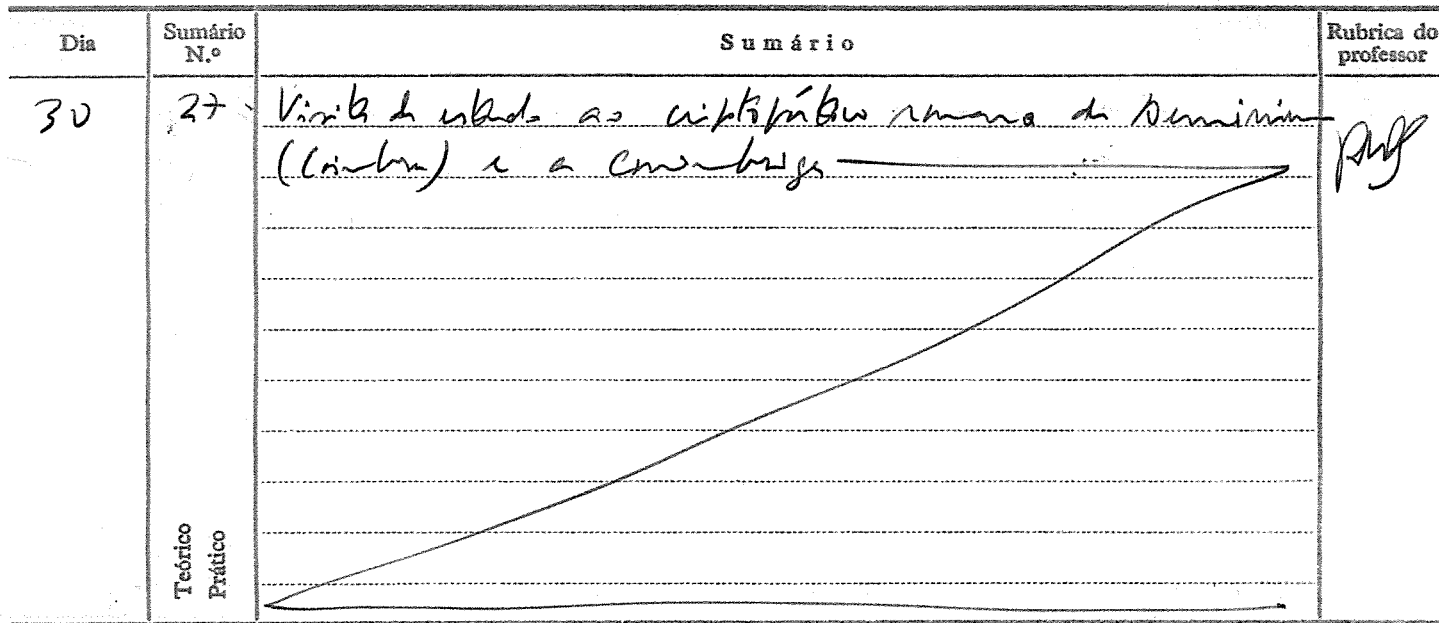 Dia
Sumário N.º
Sumário
Rubrica do professor
30
27
Visita de estudo ao criptopórtico romano de Aeminium
(Coimbra) e a Conimbriga
Teórico
Prático